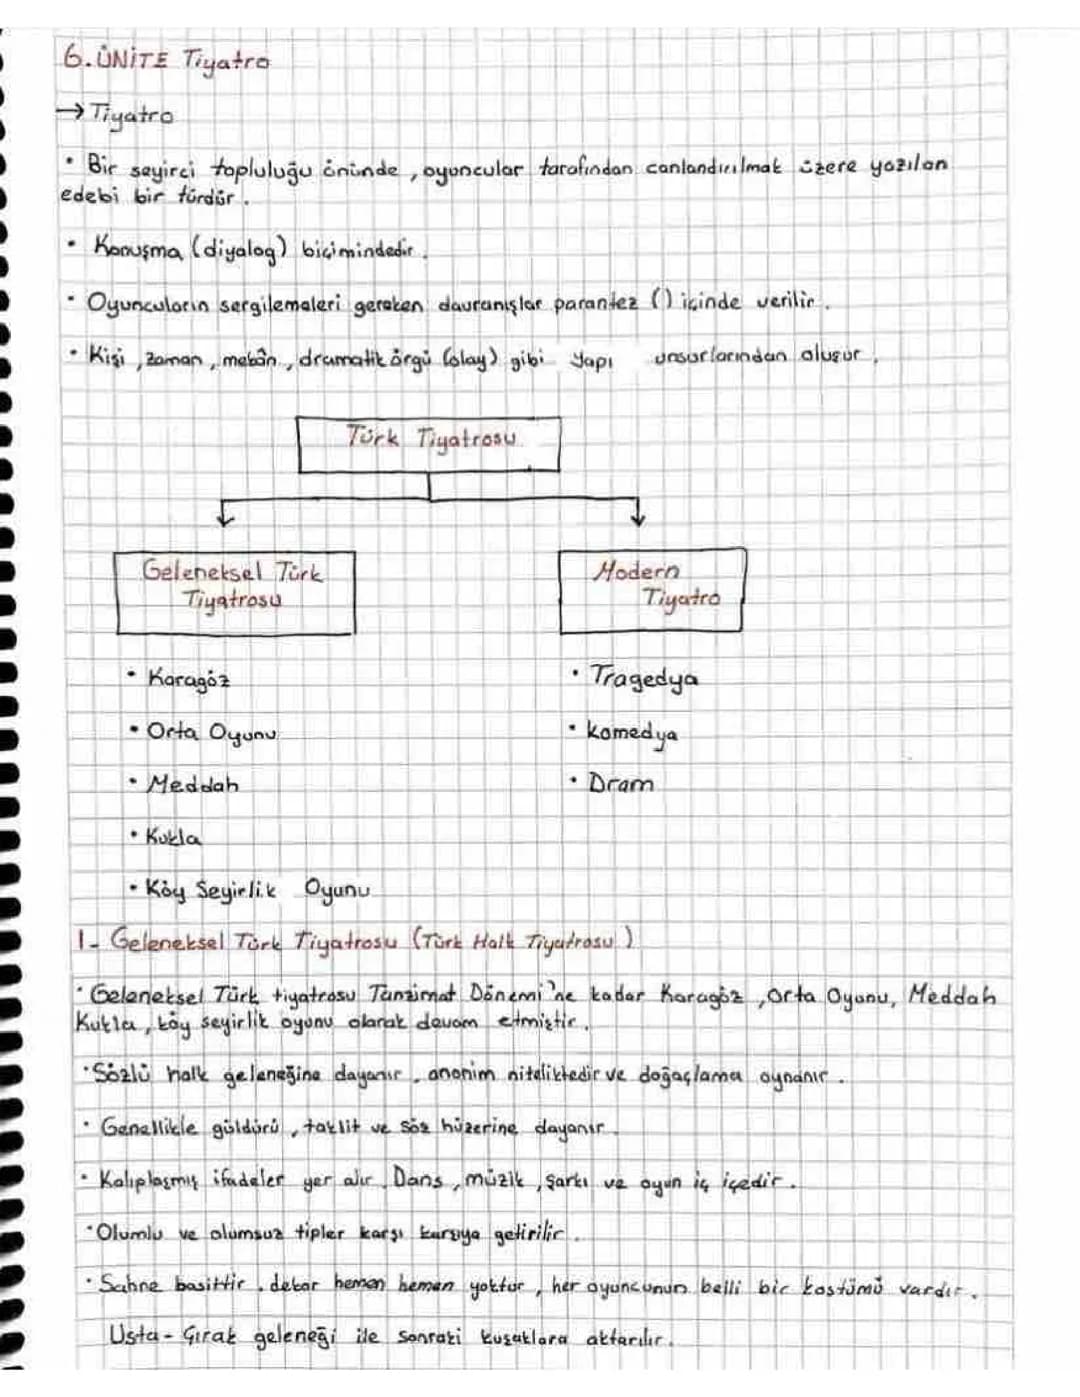 6.ÜNİTE Tiyatro
→ Tiyatro
• Bir seyirci topluluğu önünde, oyuncular tarafından canlandırılmak üzere yazılan
edebi bir türdür.
• Konuşma (diyalog) biçimindedir.
• Oyuncuların sergilemeleri gereken davranışlar parantez () içinde verilir.
• Kişi, zaman, mekân, dramatik örgü (olay) gibi yapı unsurlarından oluşur.
Türk Tiyatrosu
Geleneksel Türk
Tiyatrosu
Modern
Tiyatro
• Karagöz
• Tragedya
• Orta Oyunu
• komedya
• Meddah
• Dram
• Kukla
• Köy Seyirlik Oyunu
1- Geleneksel Türk Tiyatrosu (Türk Halk Tiyatrosu)
• Geleneksel Türk tiyatrosu Tanzimat Dönemi'ne kadar Karagöz, Orta Oyunu, Meddah
Kukla, köy seyirlik oyunu olarak devam etmiştir.
• Sözlü halk geleneğine dayanır, anonim niteliktedir ve doğaçlama oynanır.
• Genellikle güldürü, taklit ve söz hüzerine dayanır.
• Kalıplaşmış ifadeler yer alır. Dans, müzik, şarkı ve oyun iç içedir.
• Olumlu ve olumsuz tipler karşı karşıya getirilir.
• Sahne basittir, dekor hemen hemen yoktur, her oyuncunun belli bir kostümü vardır.
Usta-Çırak geleneği ile sonraki kuşaklara aktarılır.